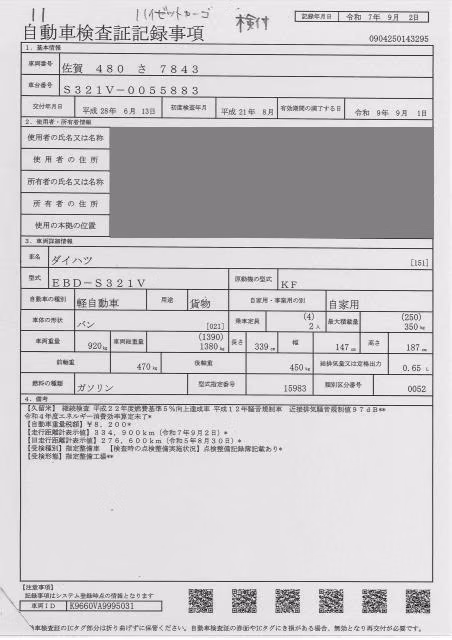 11 ハイゼットカーゴ 検付
記録年月日 令和 7年 9月 2日
自動車検査証記録事項 0904250143295
1．基本情報
車両番号 佐賀 480 さ 7843
車台番号 S321V-0055883
交付年月日 平成28年 6月 13日 初度検査年月 平成21年 8月 有効期間の満了する日 令和 9年 9月 1日
2．使用者・所有者情報
使用者の氏名又は名称
使用者の住所
所有者の氏名又は名称
所有者の住所
使用の本拠の位置
3．車両詳細情報
車名 ダイハツ [151]
型式 EBD-S321V 原動機の型式 KF
自動車の種別 軽自動車 用途 貨物 自家用・事業用の別 自家用
車体の形状 バン [021] 乗車定員 (4) 2人 最大積載量 (250) 350kg
車両重量 920kg 車両総重量 (1390) 1380kg 長さ 339cm 幅 147cm 高さ 187cm
前軸重 470kg 後軸重 450kg 総排気量又は定格出力 0.65 L
燃料の種類 ガソリン 型式指定番号 15983 類別区分番号 0052
4．備考
【久留米】 継続検査 平成22年度燃費基準5％向上達成車 平成12年騒音規制車 近接排気騒音規制値97dB**
令和4年度エネルギー消費効率算定未了*
【自動車重量税額】￥8,200*
【走行距離計表示値】334,900km（令和7年9月2日）*
【旧走行距離計表示値】276,600km（令和5年8月30日）*
【受検種別】指定整備車 【検査時の点検整備実施状況】点検整備記録簿記載あり*
【受検形態】指定整備工場**
【注意事項】
記録事項はシステム登録時点の情報となります
車両ID K9660VA9995031
動車検査証のICタグ部分は折り曲げずに保管ください。自動車検査証の券面やICタグにき損がある場合、無効となり再交付が必要です。